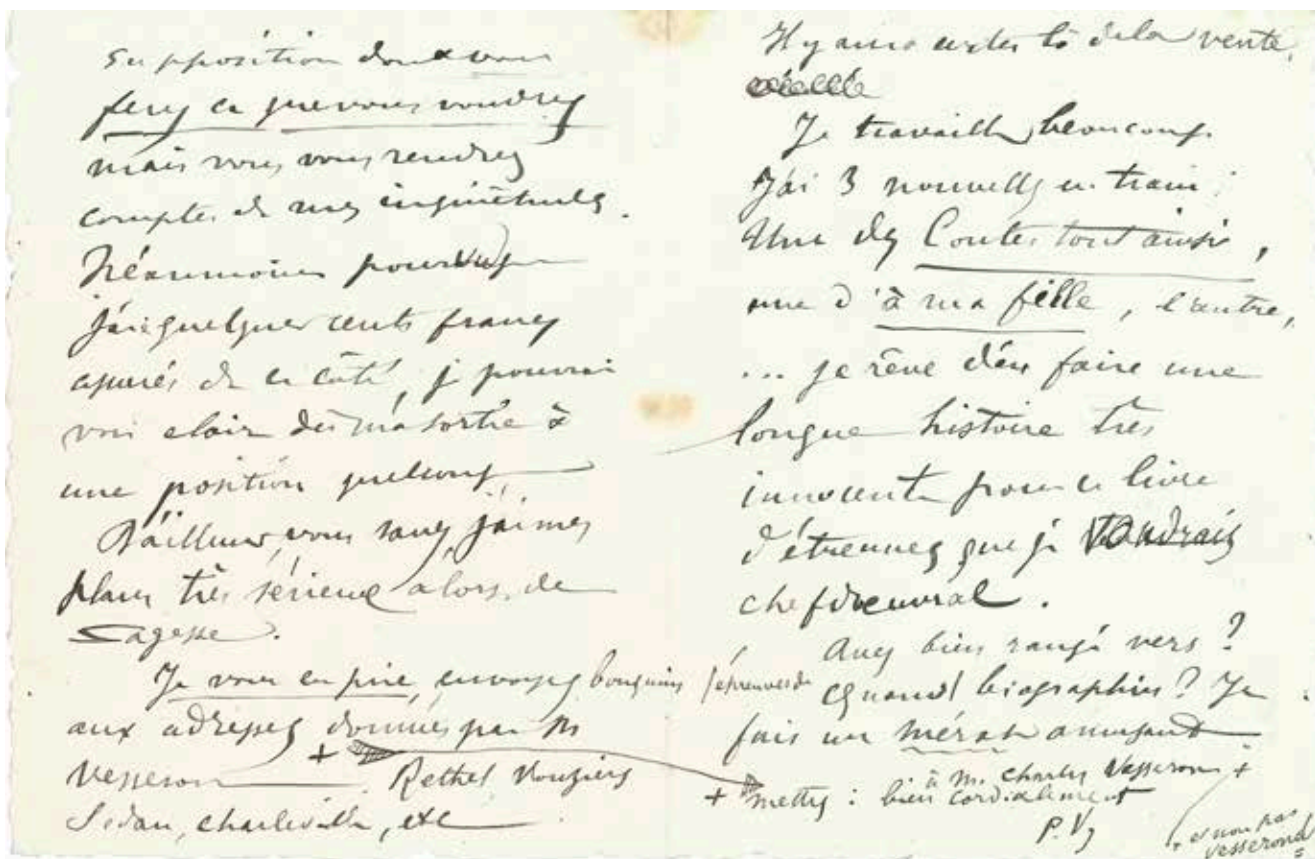 supposition dont vous
ferez ce que vous voudrez
mais vous vous rendrez
compte de mes inquiétudes.
Néanmoins pourvu que
j'aie quelques cents francs
assurés de ce côté, je pourrai
voir clair dès ma sortie à
une position quelconq
D'ailleurs, vous savez, j'ai mes
plans très sérieux alors, de
Sagesse.
Je vous en prie, envoyez bouquins /épreuves de
aux adresses données par Ms
Vesseron Rethel Vouziers
Sedan, Charleville, etc
Il y aura certes là de la vente,
Je travaille beaucoup.
J'ai 3 nouvelles en train :
Une des Contes tout ainsi,
une d'à ma fille, l'autre,
... je rêve d'en faire une
longue histoire très
innocente pour ce livre
d'étrennes que je voudrais
chefdœuvral.
Avez bien rangé vers ?
Quand biographies ? Je
fais un Mérat amusant
+ mettez : à M. Charles Vesseron +
bien cordialement
P. V
+ et non pas
Vesserond